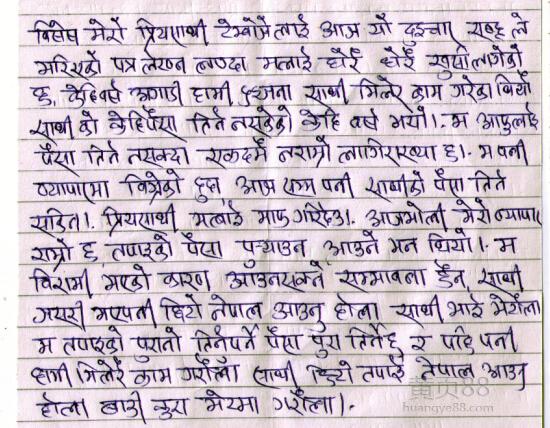 विशेष मेरो प्रियसाथी टेम्बोर्जेलाई आज यो दुइचार शब्द ले
भरिएको पत्र लेख्न लाग्दा मलाई धेरै धेरै खुसी लागेको
छ, केहिवर्ष अगाडी हामी दुइजना साथी मिलेर काम गरेका थियौं
साथी को केहिपैसा तिर्न नसकेको केहि वर्ष भयो। म आफुलाई
पैसा तिर्न नसक्दा एकदमै नराम्रो लागिराख्या छ। म पनी
व्यापारमा बिग्रेको हुदा आज सम्म पनी साथीको पैसा तिर्न
सकिन। प्रियसाथी मलाई माफ गरिदेउ। आजभोली मेरो व्यापार
राम्रो छ तपाइको पैसा पुर्‍याउन आउने मन थियो। म
विरामी भएको कारण आउनसक्ने सम्भावना छैन, साथी
जसरी भएपनी छिटो नेपाल आउनु होला साथी भाई भेटौला
म तपाइको पुरानो तिर्नुपर्ने पैसा पुरा तिर्नेछु र पछि पनी
हामी मिलेरै काम गरौला साथी छिटो तपाई नेपाल आउनु
होला बाकी कुरा भेटमा गरौला।
黄页88
huangye88.com